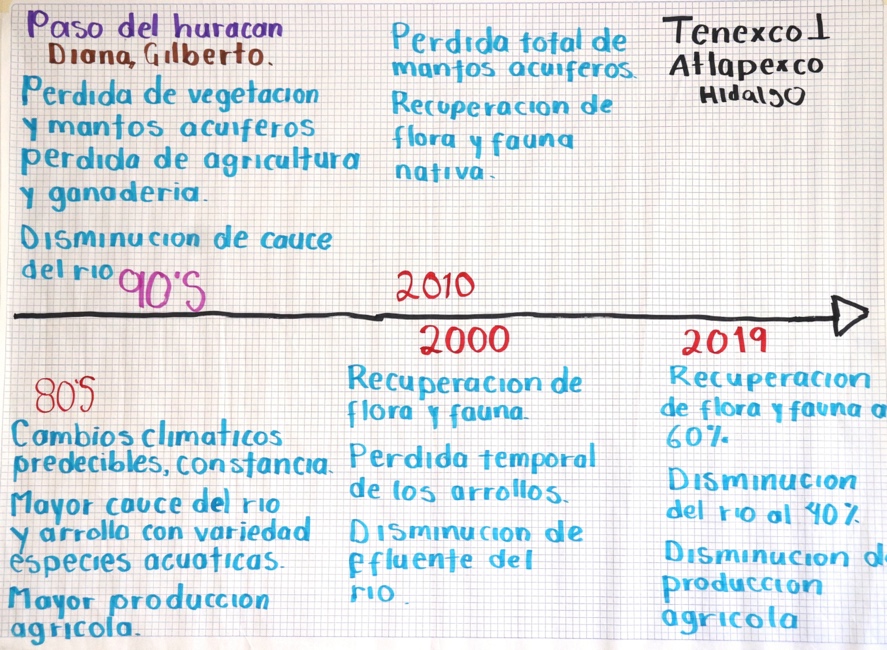 Paso del huracan
Diana, Gilberto.
Perdida de vegetacion
y mantos acuiferos
perdida de agricultura
y ganaderia.
Disminucion de cauce
del rio
90'S
Perdida total de
mantos acuiferos.
Recuperacion de
flora y fauna
nativa.
2010
Tenexco I
Atlapexco
Hidalgo
80'S
Cambios climaticos
predecibles, constancia.
Mayor cauce del rio
y arrollo con variedad
especies acuaticas.
Mayor produccion
agricola.
2000
Recuperacion de
flora y fauna.
Perdida temporal
de los arrollos.
Disminucion de
efluente del
rio.
2019
Recuperacion
de flora y fauna a
60%
Disminucion
del rio al 40%
Disminucion de
produccion
agricola